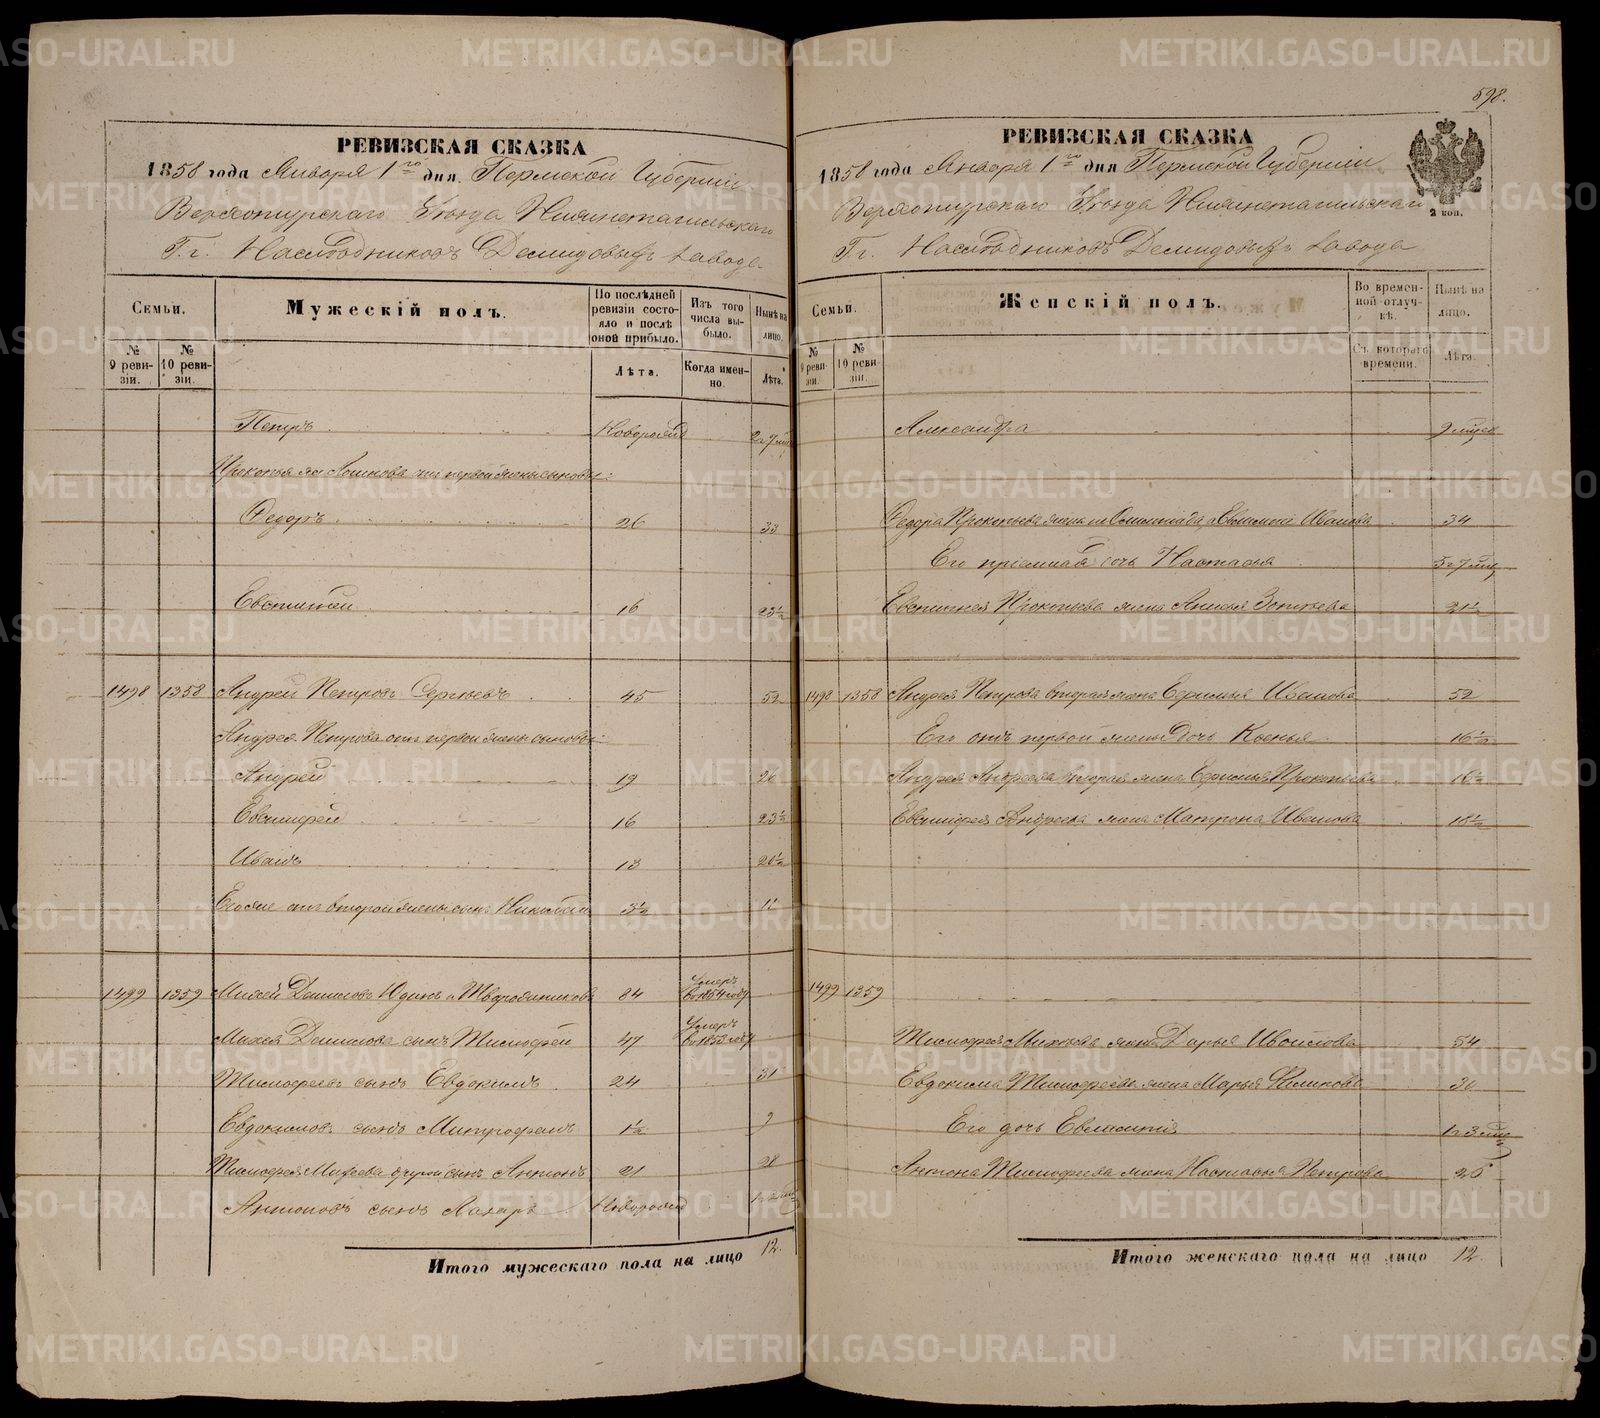 598.
РЕВИЗСКАЯ СКАЗКА
1858 года Января 1го дня Пермской Губерніи
Верхотурскаго Уѣзда Нижнетагильскаго
Гг. Наслѣдниковъ Демидовыхъ завода
Семьи.
Мужескій полъ.
По послѣдней ревизіи состояло и послѣ оной прибыло.
Изъ того числа выбыло.
Нынѣ на лицо.
№ 9 ревизіи.
№ 10 ревизіи.
Лѣта.
Когда именно.
Лѣта.
Петръ Новорожд
Прокопья от первой жены сыновья:
Федоръ 26 33
Евстигней 16 23½
1498 1358 Андрей Петровъ Сергѣевъ 45 52
Андрея Петрова отъ первой жены сыновья:
Андрей 19 26
Евстифей 16 23½
Иванъ 13 20½
Его же отъ второй жены сынъ Николай 3½ 11
1499 1359 Михей Даниловъ Юдинъ 84 Умеръ въ 1854 году
Михея Данилова сынъ Тимофей 47 Умеръ въ 1853 году
Тимофеевъ сынъ Евдокимъ 24 31
Евдокимовъ сынъ Митрофанъ 1½ 9
Тимофея Михеева другой сынъ Антонъ 21 28
Антоновъ сынъ Захаръ Новорожд
Итого мужескаго пола на лицо 12.
РЕВИЗСКАЯ СКАЗКА
1858 года Января 1го дня Пермской Губерніи
2 коп.
Верхотурскаго Уѣзда Нижнетагильскаго
Гг. Наслѣдниковъ Демидовыхъ завода
Семьи.
Женскій полъ.
Во временной отлучкѣ.
Нынѣ на лицо.
№ 9 ревизіи.
№ 10 ревизіи.
Съ котораго времени.
Лѣта.
Александра 9 мцев
Федора Прокопьева жена Иванова 34
Его пріемная дочь Настасья
Евстигнея Прокопьева жена Анисья Зотѣева 21½
1498 1358 Андрея Петрова вторая жена Ефимья Иванова 52
Его отъ первой жены дочь Ксенья 16½
Андрея Андреева вторая жена Ефимья Прокопьева 18½
Евстифея Андреева жена Матрона Иванова 18½
1499 1359
Тимофея Михеева жена Дарья 54
Евдокима Тимофеева жена Марья Филипова 30
Его дочь Евлампія
Антона Тимофеева жена Настасья Петрова 26
Итого женскаго пола на лицо 12.
METRIKI.GASO-URAL.RU